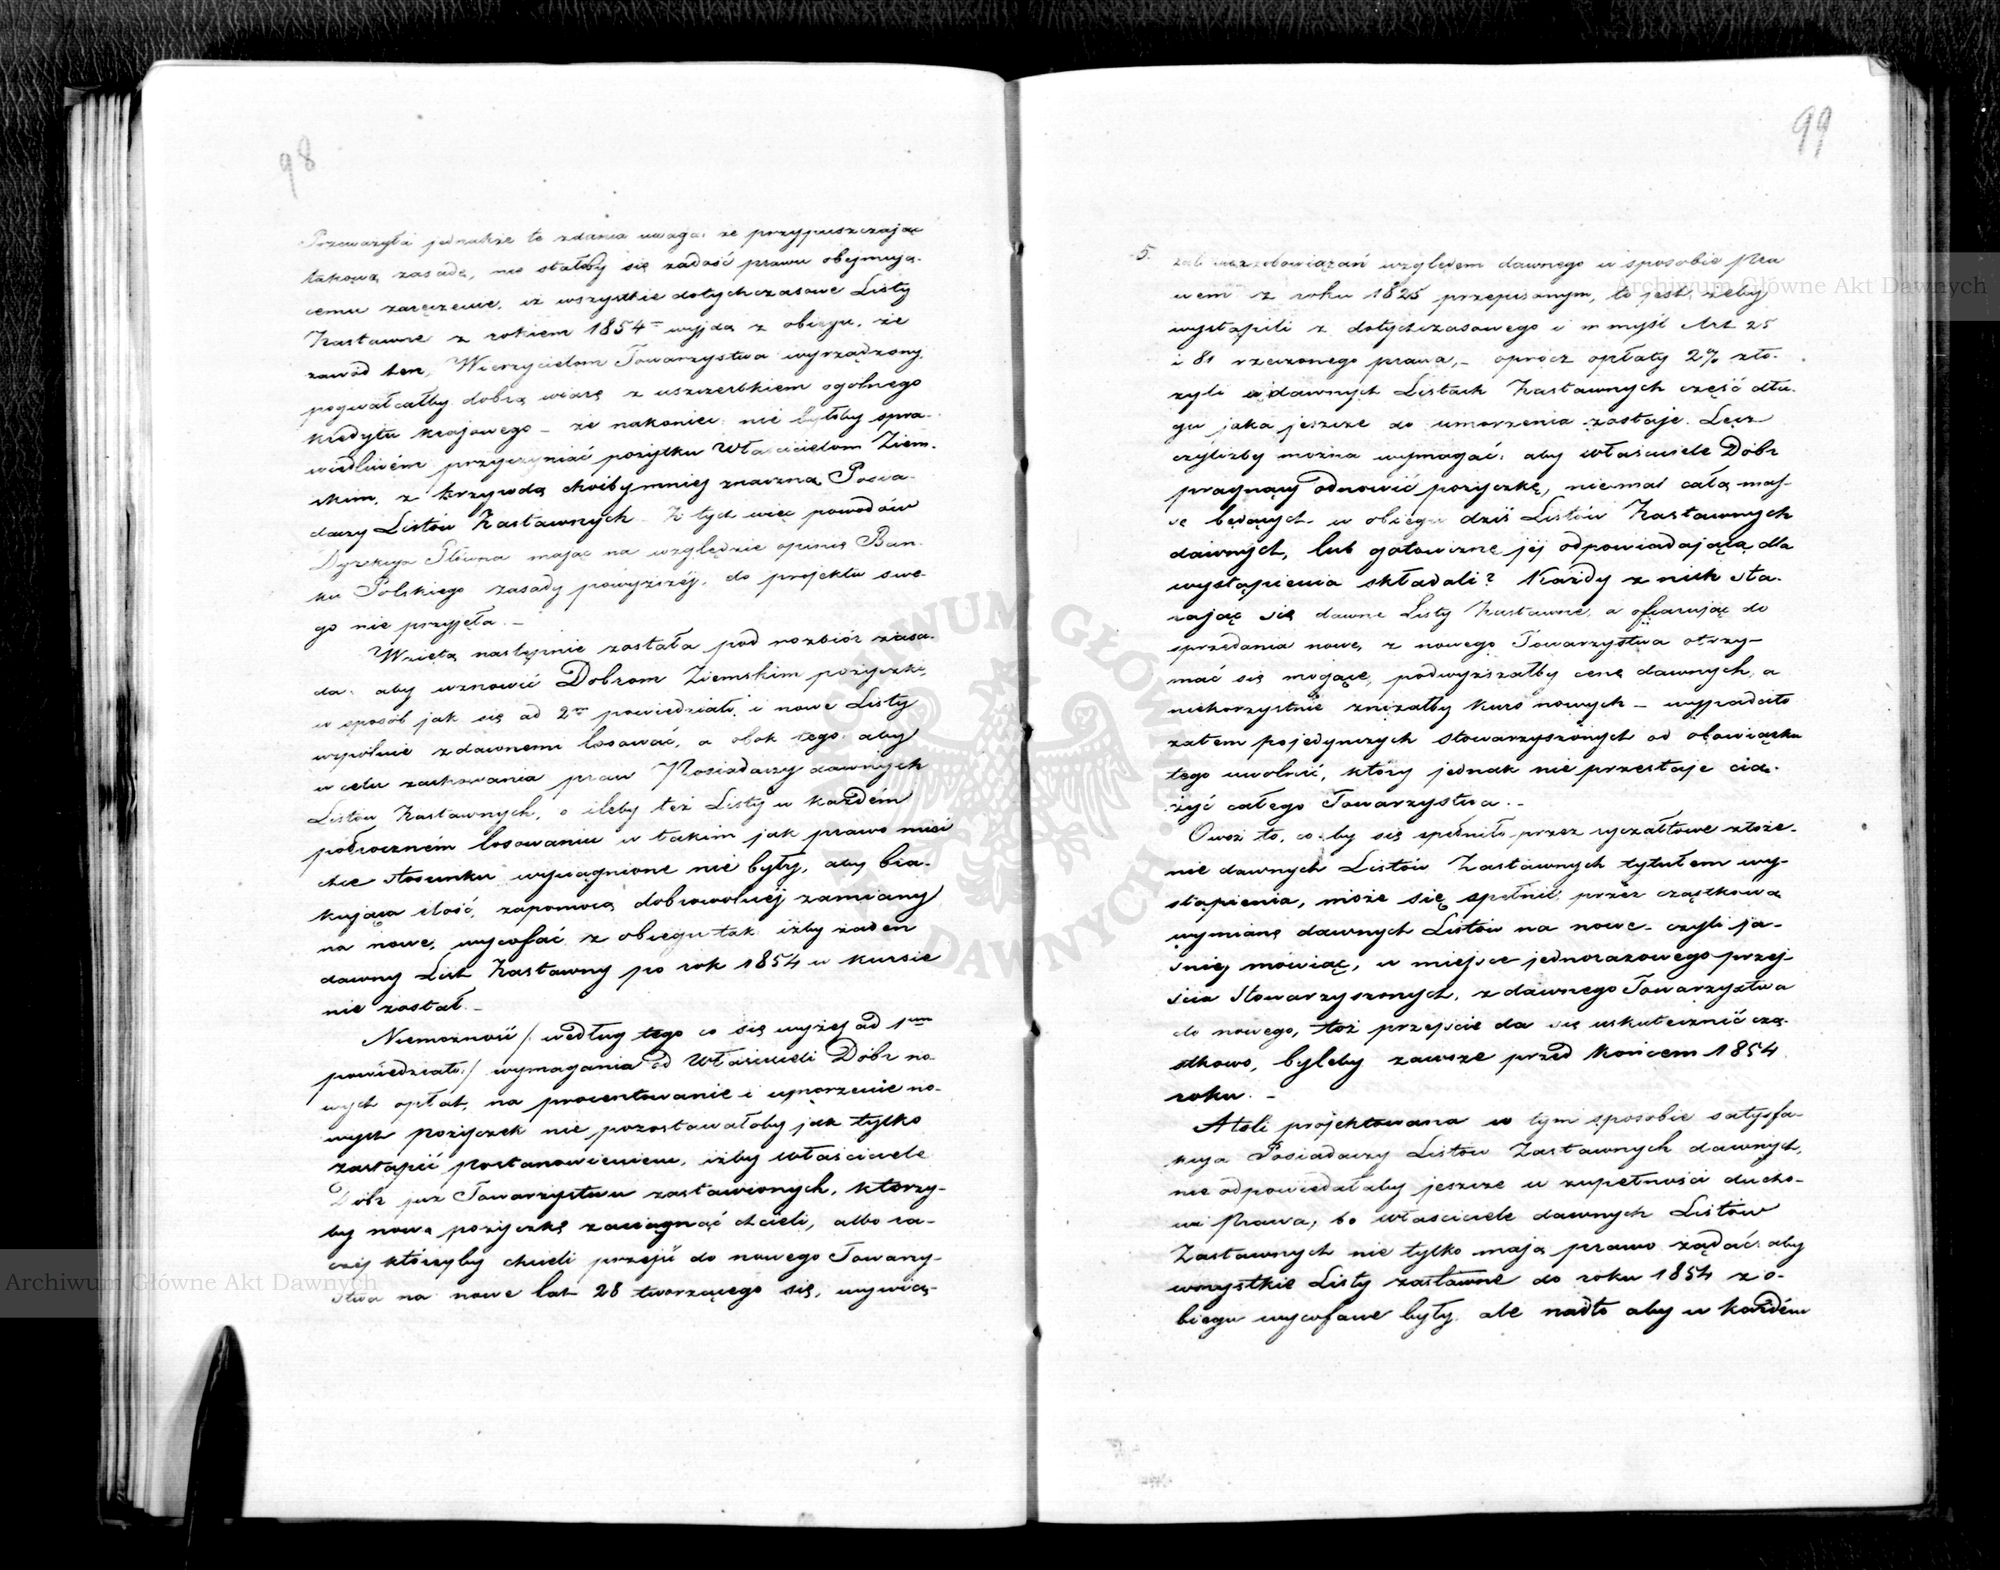 98
Przeważyła jednakże te zdania uwaga: że przypuszczając
takową zasadę, nie stałoby się zadość prawu obejmują-
cemu zaręczenie, iż wszystkie dotychczasowe Listy
Zastawne z rokiem 1854 wyjdą z obiegu, że
zawód ten, Wierzycielom Towarzystwa wyrządzony,
pogwałcałby dobrą wiarę z uszczerbkiem ogólnego
kredytu krajowego – że nakoniec nie byłoby spra-
wiedliwém przyczyniać pożytku Właścicielom Ziem-
skim, z krzywdą choćby mniej znaczną Posia-
daczy Listów Zastawnych. Z tych więc powodów
Dyrekcya Główna mając na względzie opinię Ban-
ku Polskiego zasady powyższéj, do projektu swe-
go nie przyjęła. –
Wziętą następnie została pod rozbiór zasa-
da: aby wznowić Dobrom Ziemskim pożyczkę,
w sposób jak się ad 2 powiedziało, i nowe Listy
wspólnie z dawnemi losować, a obok tego, aby
w celu zachowania praw Posiadaczy dawnych
Listów Zastawnych, o ileby też Listy w każdém
półroczném losowaniu w takim jak prawo mieć
chce stosunku wyciągnione nie były, aby bra-
kującą ilość, zapomocą dobrowolnéj zamiany
na nowe, wycofać z obiegu tak iżby żaden
dawny List Zastawny po rok 1854 w kursie
nie został. –
Niemożność /: według tego co się wyżej ad 1
powiedziało :/ wymagania od Właścicieli Dóbr no
wych opłat, na procentowanie i umorzenie no-
wych pożyczek nie pozostawałoby jak tylko
zastąpić postanowieniem, iżby właściciele
Dóbr już Towarzystwu zastawionych, którzy-
by nową pożyczkę zaciągnąć chcieli, albo ra-
czej którzyby chcieli przejść do nowego Towarzy-
stwa na nowe lat 28 tworzącego się, wywią-
99
5.
zali się z zobowiązań względem dawnego w sposobie Pra
wem z roku 1825 przepisanym, to jest, żeby
wystąpili z dotychczasowego i w myśl Art 25
i 81 rzeczonego prawa, – oprócz opłaty 2% zło-
żyli w dawnych Listach Zastawnych część dłu-
gu jaka jeszcze do umorzenia zostaje. Lecz
czyliżby można wymagać: aby właściciele Dóbr
pragnący odnowić pożyczkę, niemal całą mas-
sę będących w obiegu dziś Listów Zastawnych
dawnych, lub gotowiznę jéj odpowiadającą dla
wystąpienia składali? Każdy z nich sta-
rając się dawne Listy Zastawne, a ofiarując do
sprzedania nowe, z nowego Towarzystwa otrzy-
mać się mające, podwyższałby cenę dawnych, a
niekorzystnie zniżałby kurs nowych – wypadało
zatem pojedynczych stowarzyszonych od obowiązku
tego uwolnić, który jednak nie przestaje cią-
żyć całego Towarzystwa. –
Owoż to, co by się spełniło przez ryczałtowe złoże-
nie dawnych Listów Zastawnych tytułem wy-
stąpienia, może się spełnić przez cząstkową
wymianę dawnych Listów na nowe – czyli ja-
śniej mówiąc, w miejsce jednorazowego przej-
ścia Stowarzyszonych, z dawnego Towarzystwa
do nowego, toż przejście da się uskutecznić czą-
stkowo, byleby zawsze przed końcem 1854
roku. –
Atoli projektowana w tym sposobie satysfa-
kcya Posiadaczy Listów Zastawnych dawnych,
nie odpowiedałaby jeszcze w zupełności ducho-
wi Prawa, bo właściciele dawnych Listów
Zastawnych nie tylko mają prawo żądać aby
wszystkie Listy zastawne do roku 1854 z o-
biegu wycofane były, ale nadto aby w każdém
Archiwum Główne Akt Dawnych
Archiwum Główne Akt Dawnych
ARCHIWUM GŁÓWNE AKT DAWNYCH